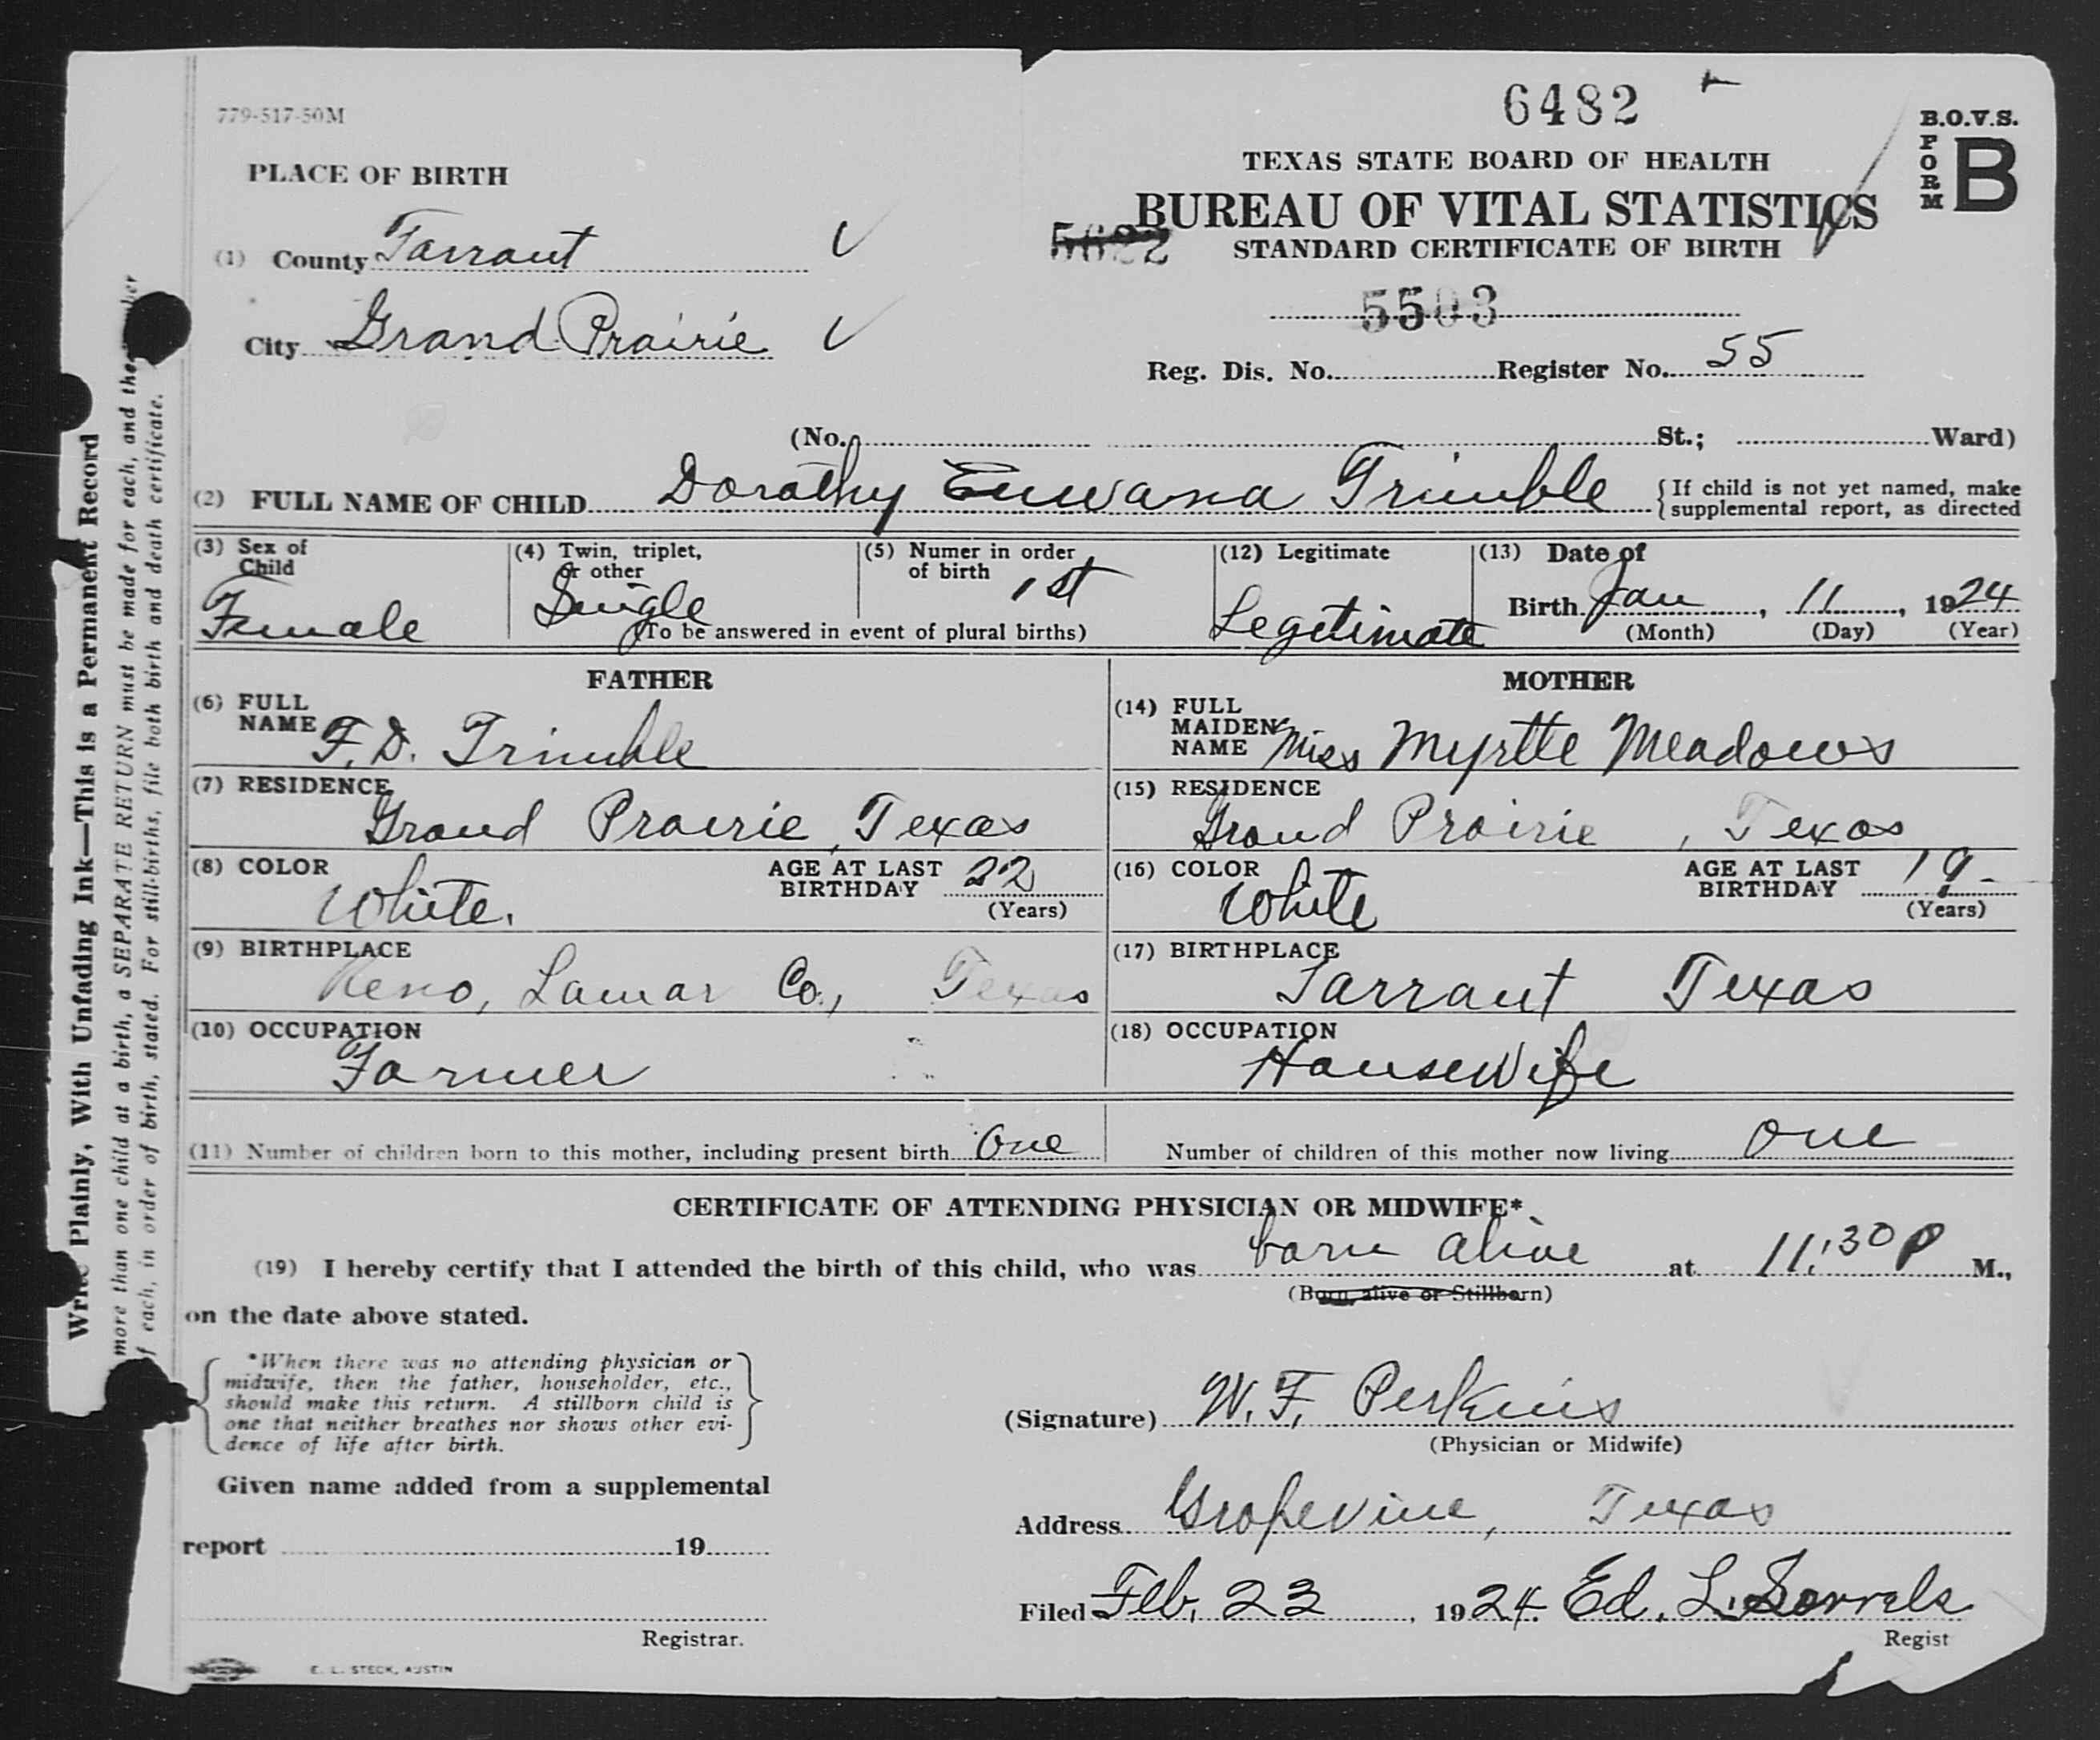 779-517-50M
6482
B.O.V.S.
FORM B
TEXAS STATE BOARD OF HEALTH
BUREAU OF VITAL STATISTICS
STANDARD CERTIFICATE OF BIRTH
5622
5503
PLACE OF BIRTH
(1) County Tarrant
City Grand Prairie
Reg. Dis. No. Register No. 55
(No. St.; Ward)
(2) FULL NAME OF CHILD Dorathy Euwana Trimble {If child is not yet named, make
{supplemental report, as directed
(3) Sex of Child Female
(4) Twin, triplet, or other Single
(5) Numer in order of birth 1st
(To be answered in event of plural births)
(12) Legitimate Legetimate
(13) Date of Birth Jan, 11, 1924
(Month) (Day) (Year)
FATHER
(6) FULL NAME F.D. Trimble
(7) RESIDENCE Grand Prairie, Texas
(8) COLOR White. AGE AT LAST BIRTHDAY 22 (Years)
(9) BIRTHPLACE Reno, Lamar Co., Texas
(10) OCCUPATION Farmer
MOTHER
(14) FULL MAIDEN NAME Miss Myrtle Meadows
(15) RESIDENCE Grand Prairie, Texas
(16) COLOR White AGE AT LAST BIRTHDAY 19 (Years)
(17) BIRTHPLACE Tarrant Texas
(18) OCCUPATION HouseWife
(11) Number of children born to this mother, including present birth One Number of children of this mother now living one
CERTIFICATE OF ATTENDING PHYSICIAN OR MIDWIFE*
(19) I hereby certify that I attended the birth of this child, who was born alive at 11:30 P M.,
(Born alive or Stillborn)
on the date above stated.
*When there was no attending physician or
midwife, then the father, householder, etc.,
should make this return. A stillborn child is
one that neither breathes nor shows other evi-
dence of life after birth.
(Signature) W. F. Perkins
(Physician or Midwife)
Given name added from a supplemental
report 19
Address Grapevine, Texas
Filed Feb. 23, 1924. Ed. L. Sorrels
Registrar. Regist
E. L. STECK, AUSTIN
Write Plainly, With Unfading Ink—This is a Permanent Record
more than one child at a birth, a SEPARATE RETURN must be made for each, and the
f each, in order of birth, stated. For still-births, file both birth and death certificate.